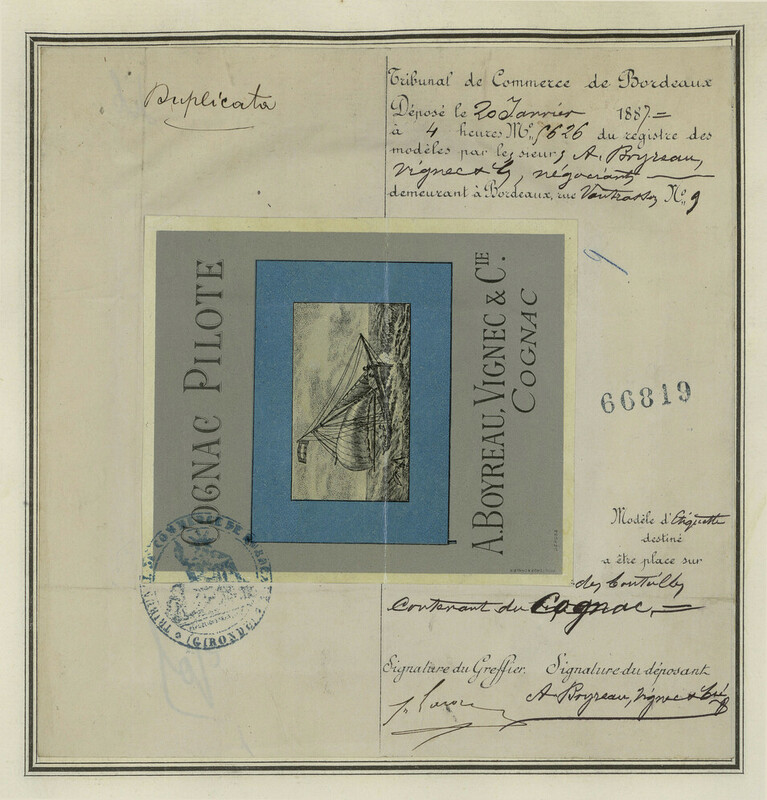 Duplicata
Tribunal de Commerce de Bordeaux
Déposé le 20 Janvier 1887=
à 4 heures Nº 5626 du registre des
modèles par les sieurs A. Boyreau,
Vignec & Cie, négociants
demeurant à Bordeaux, rue Nº 9
COGNAC PILOTE
A. BOYREAU, VIGNEC & CIE.
COGNAC
66819
Modèle d'Etiquette
destiné
a être place sur
des bouteilles
contenant du Cognac,=
TRIBUNAL DE COMMERCE DE BORDEAUX
(GIRONDE)
Signature du Greffier. Signature du déposant
A Boyreau, Vignec & Cie